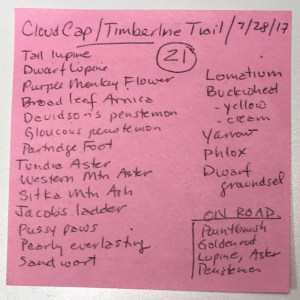 Cloud Cap / Timberline Trail / 7/28/17
21
Tall lupine
Dwarf Lupine
Purple Monkey Flower
Broad leaf Arnica
Davidson's penstemon
Gloucous penstemon
Partridge Foot
Tundra Aster
Western Mtn Aster
Sitka Mtn Ash
Jacobs ladder
Pussy paws
Pearly everlasting
Sandwort
Lomatium
Buckwheat
- yellow
- cream
Yarrow
Phlox
Dwarf
groundsel
ON ROAD
Paintbrush
Goldenrod
Lupine, Aster
Penstemon